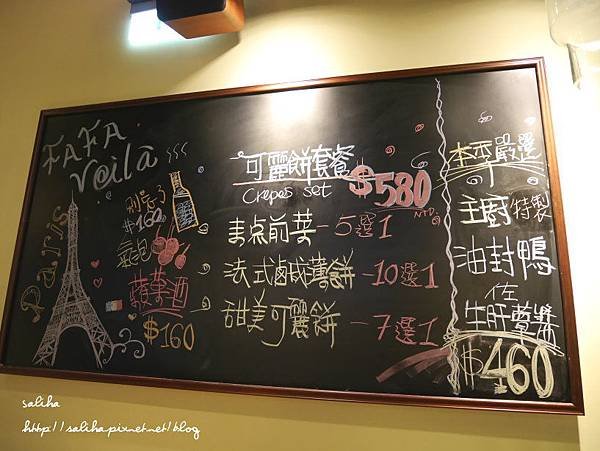 FAFA
Voilà
Paris
別忘了
$160
氣泡
蘋果酒
$160
可麗餅套餐
Crepes set
$580
NTD.
美点前菜 - 5選1
法式鹹薄餅 - 10選1
甜美可麗餅 - 7選1
本季嚴選
主廚特製
油封鴨
佐
生肝蕈醬
$460
saliha
http://saliha.pixnet.net/blog